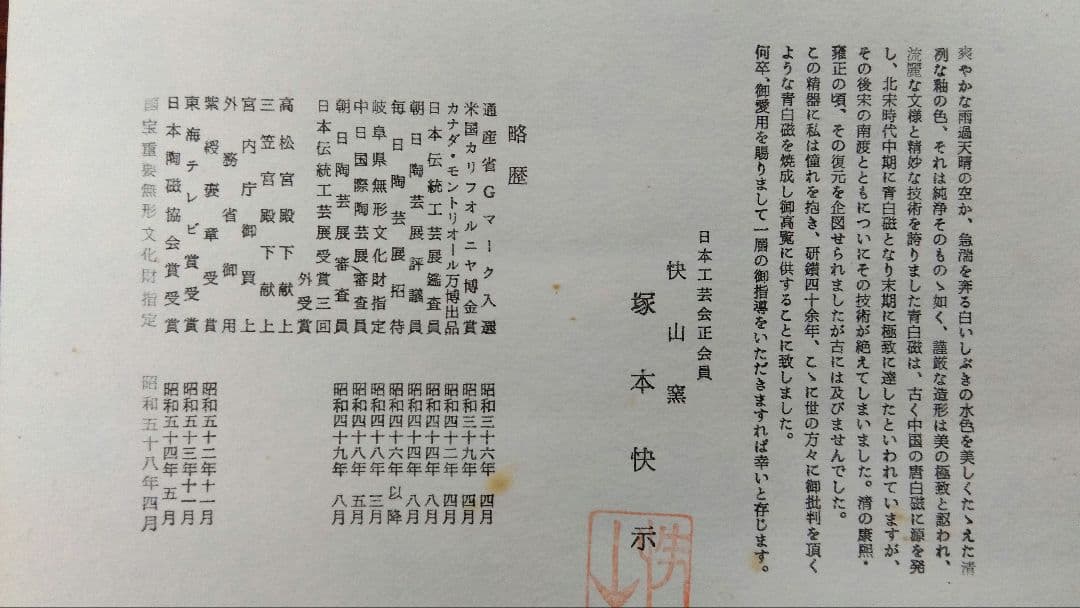 爽やかな雨過天晴の空か、急湍を奔る白いしぶきの水色を美しくたゝえた清
冽な釉の色、それは純浄そのものゝ如く、謹厳な造形は美の極致と謳われ、
流麗な文様と精妙な技術を誇りました青白磁は、古く中国の唐白磁に源を発
し、北宋時代中期に青白磁となり末期に極致に達したといわれていますが、
その後宋の南渡とともについにその技術が絶えてしまいました。清の康熙・
雍正の頃、その復元を企図せられましたが古には及びませんでした。
この精器に私は憧れを抱き、研鑽四十余年、こゝに世の方々に御批判を頂く
ような青白磁を焼成し御高覧に供することに致しました。
何卒、御愛用を賜りまして一層の御指導をいただきますれば幸いと存じます。
日本工芸会正会員
快山窯
塚本快示
略歴
通産省Gマーク入選 昭和三十六年 四月
米国カリフォルニヤ博金賞 昭和三十九年 四月
カナダ・モントリオール万博出品 昭和四十二年 四月
日本伝統工芸展鑑査員 昭和四十四年 八月
朝日陶芸展評議員 昭和四十四年 八月
毎日陶芸展招待 昭和四十六年 以降
岐阜県無形文化財指定 昭和四十八年 三月
中日国際陶芸展審査員 昭和四十八年 五月
朝日陶芸展審査員 昭和四十九年 八月
日本伝統工芸展受賞三回
外受賞
高松宮殿下献上
三笠宮殿下献上
宮内庁御買上
外務省御用
紫綬褒章受賞 昭和五十二年十一月
東海テレビ賞受賞 昭和五十三年十一月
日本陶磁協会賞受賞 昭和五十四年 五月
國宝重要無形文化財指定 昭和五十八年四月
快山